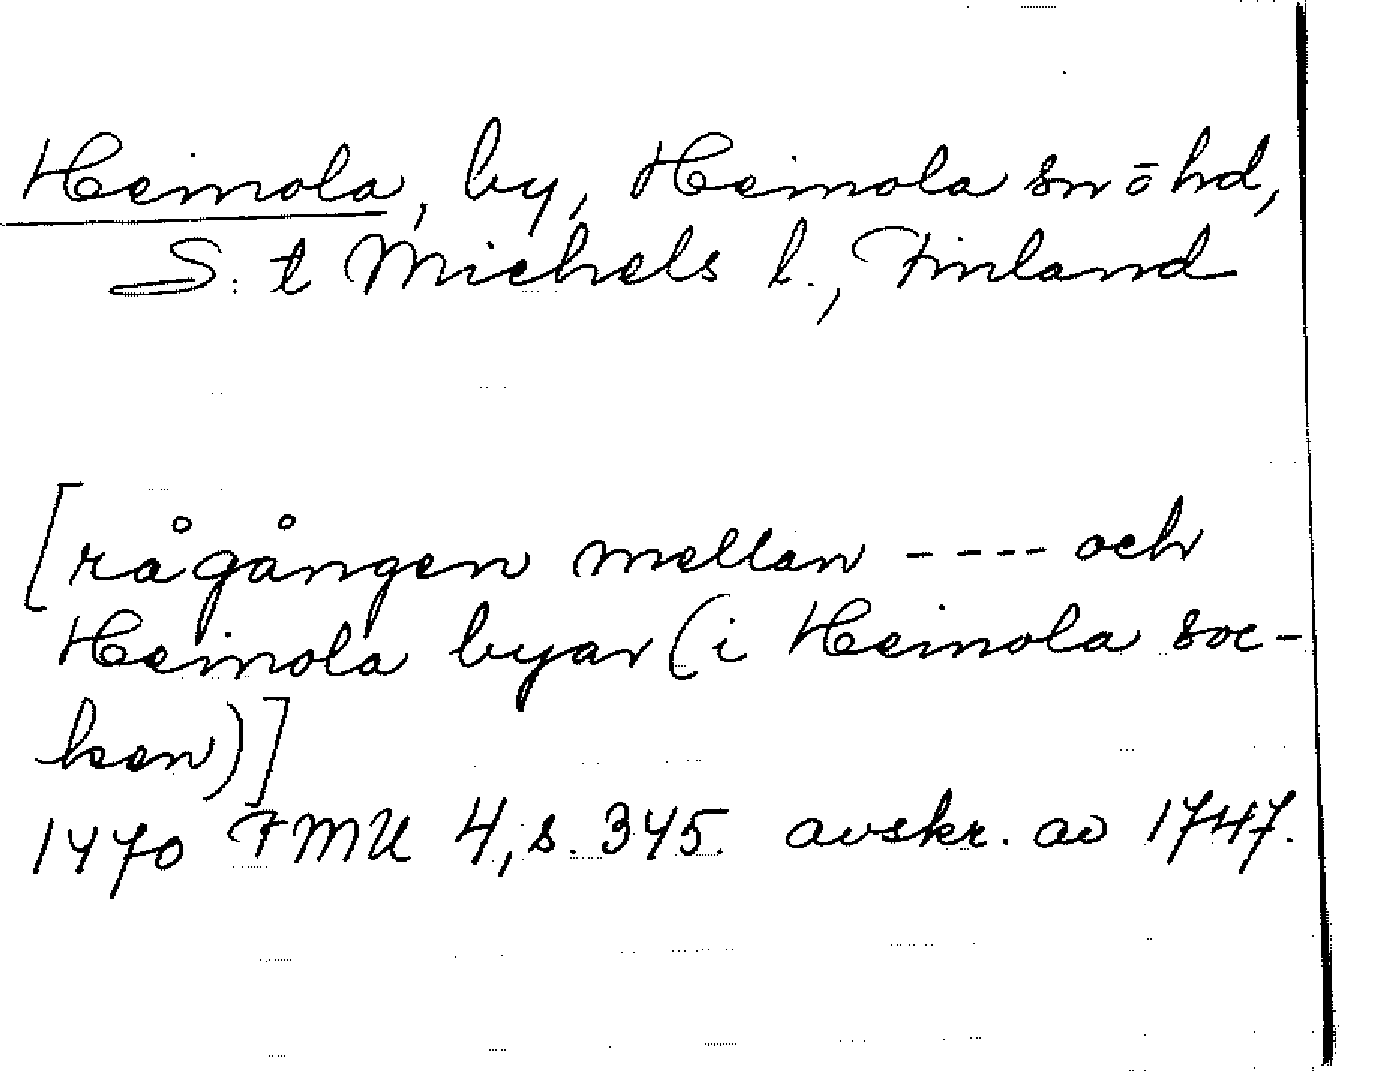 Heinola, by, Heinola sn o hd,
S:t Michels l., Finland
[rågången mellan ---- och
Heinola byar (i Heinola soc-
ken)]
1470 FMU 4, s. 345. avskr. av 1747.